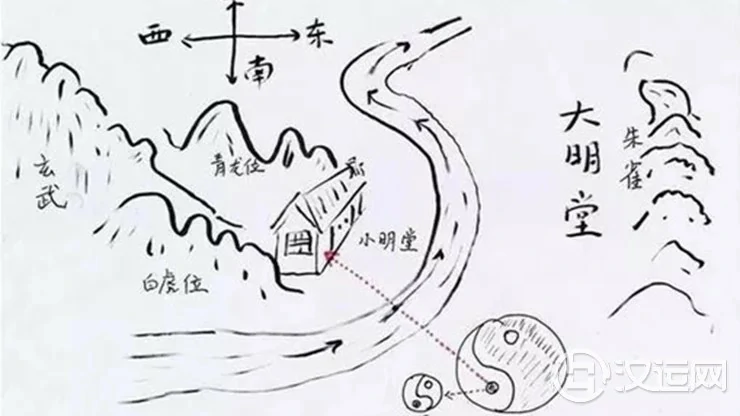 西 东
南
大明堂
朱雀
玄武
青龙位
小明堂
白虎位
汉运网